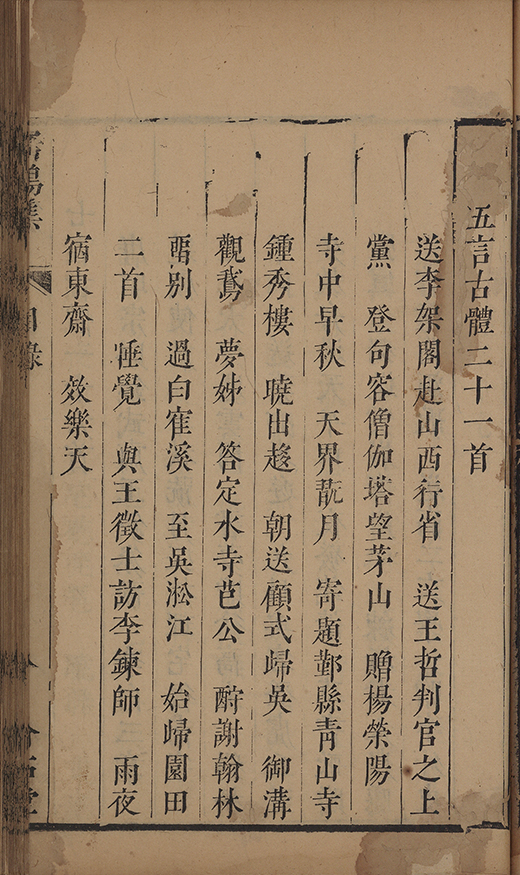 五言古體二十一首
送李架閣赴山西行省　送王哲判官之上
黨　登句容僧伽塔望茅山　贈楊滎陽
寺中早秋　天界翫月　寄題鄞縣青山寺
鍾秀樓　曉出趍朝送顧式歸吳　御溝
觀鵞　夢姊　答定水寺芑公　酧謝翰林
畱別　過白寉溪至吳淞江　始歸園田
二首　睡覺　與王徵士訪李鍊師　雨夜
宿東齋　效樂天
目錄